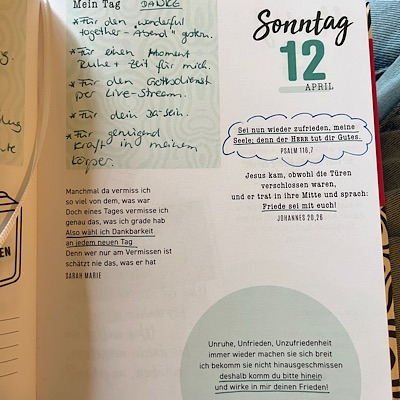 Mein Tag DANKE
* Für den "wonderful
together-Abend" gestern.
* Für einen Moment
Ruhe + Zeit für mich.
* Für den Gottesdienst
per Live-Stream.
* Für dein Da-sein.
* Für genügend
Kraft in meinem
Körper.
Manchmal da vermiss ich
so viel von dem, was war
Doch eines Tages vermisse ich
genau das, was ich grade hab
Also wähl ich Dankbarkeit
an jedem neuen Tag
Denn wer nur am Vermissen ist
schätzt nie das, was er hat
SARAH MARIE
Sonntag
12
APRIL
Sei nun wieder zufrieden, meine
Seele; denn der HERR tut dir Gutes.
PSALM 116,7
Jesus kam, obwohl die Türen
verschlossen waren,
und er trat in ihre Mitte und sprach:
Friede sei mit euch!
JOHANNES 20,26
Unruhe, Unfrieden, Unzufriedenheit
immer wieder machen sie sich breit
ich bekomm sie nicht hinausgeschmissen
deshalb komm du bitte hinein
und wirke in mir deinen Frieden!